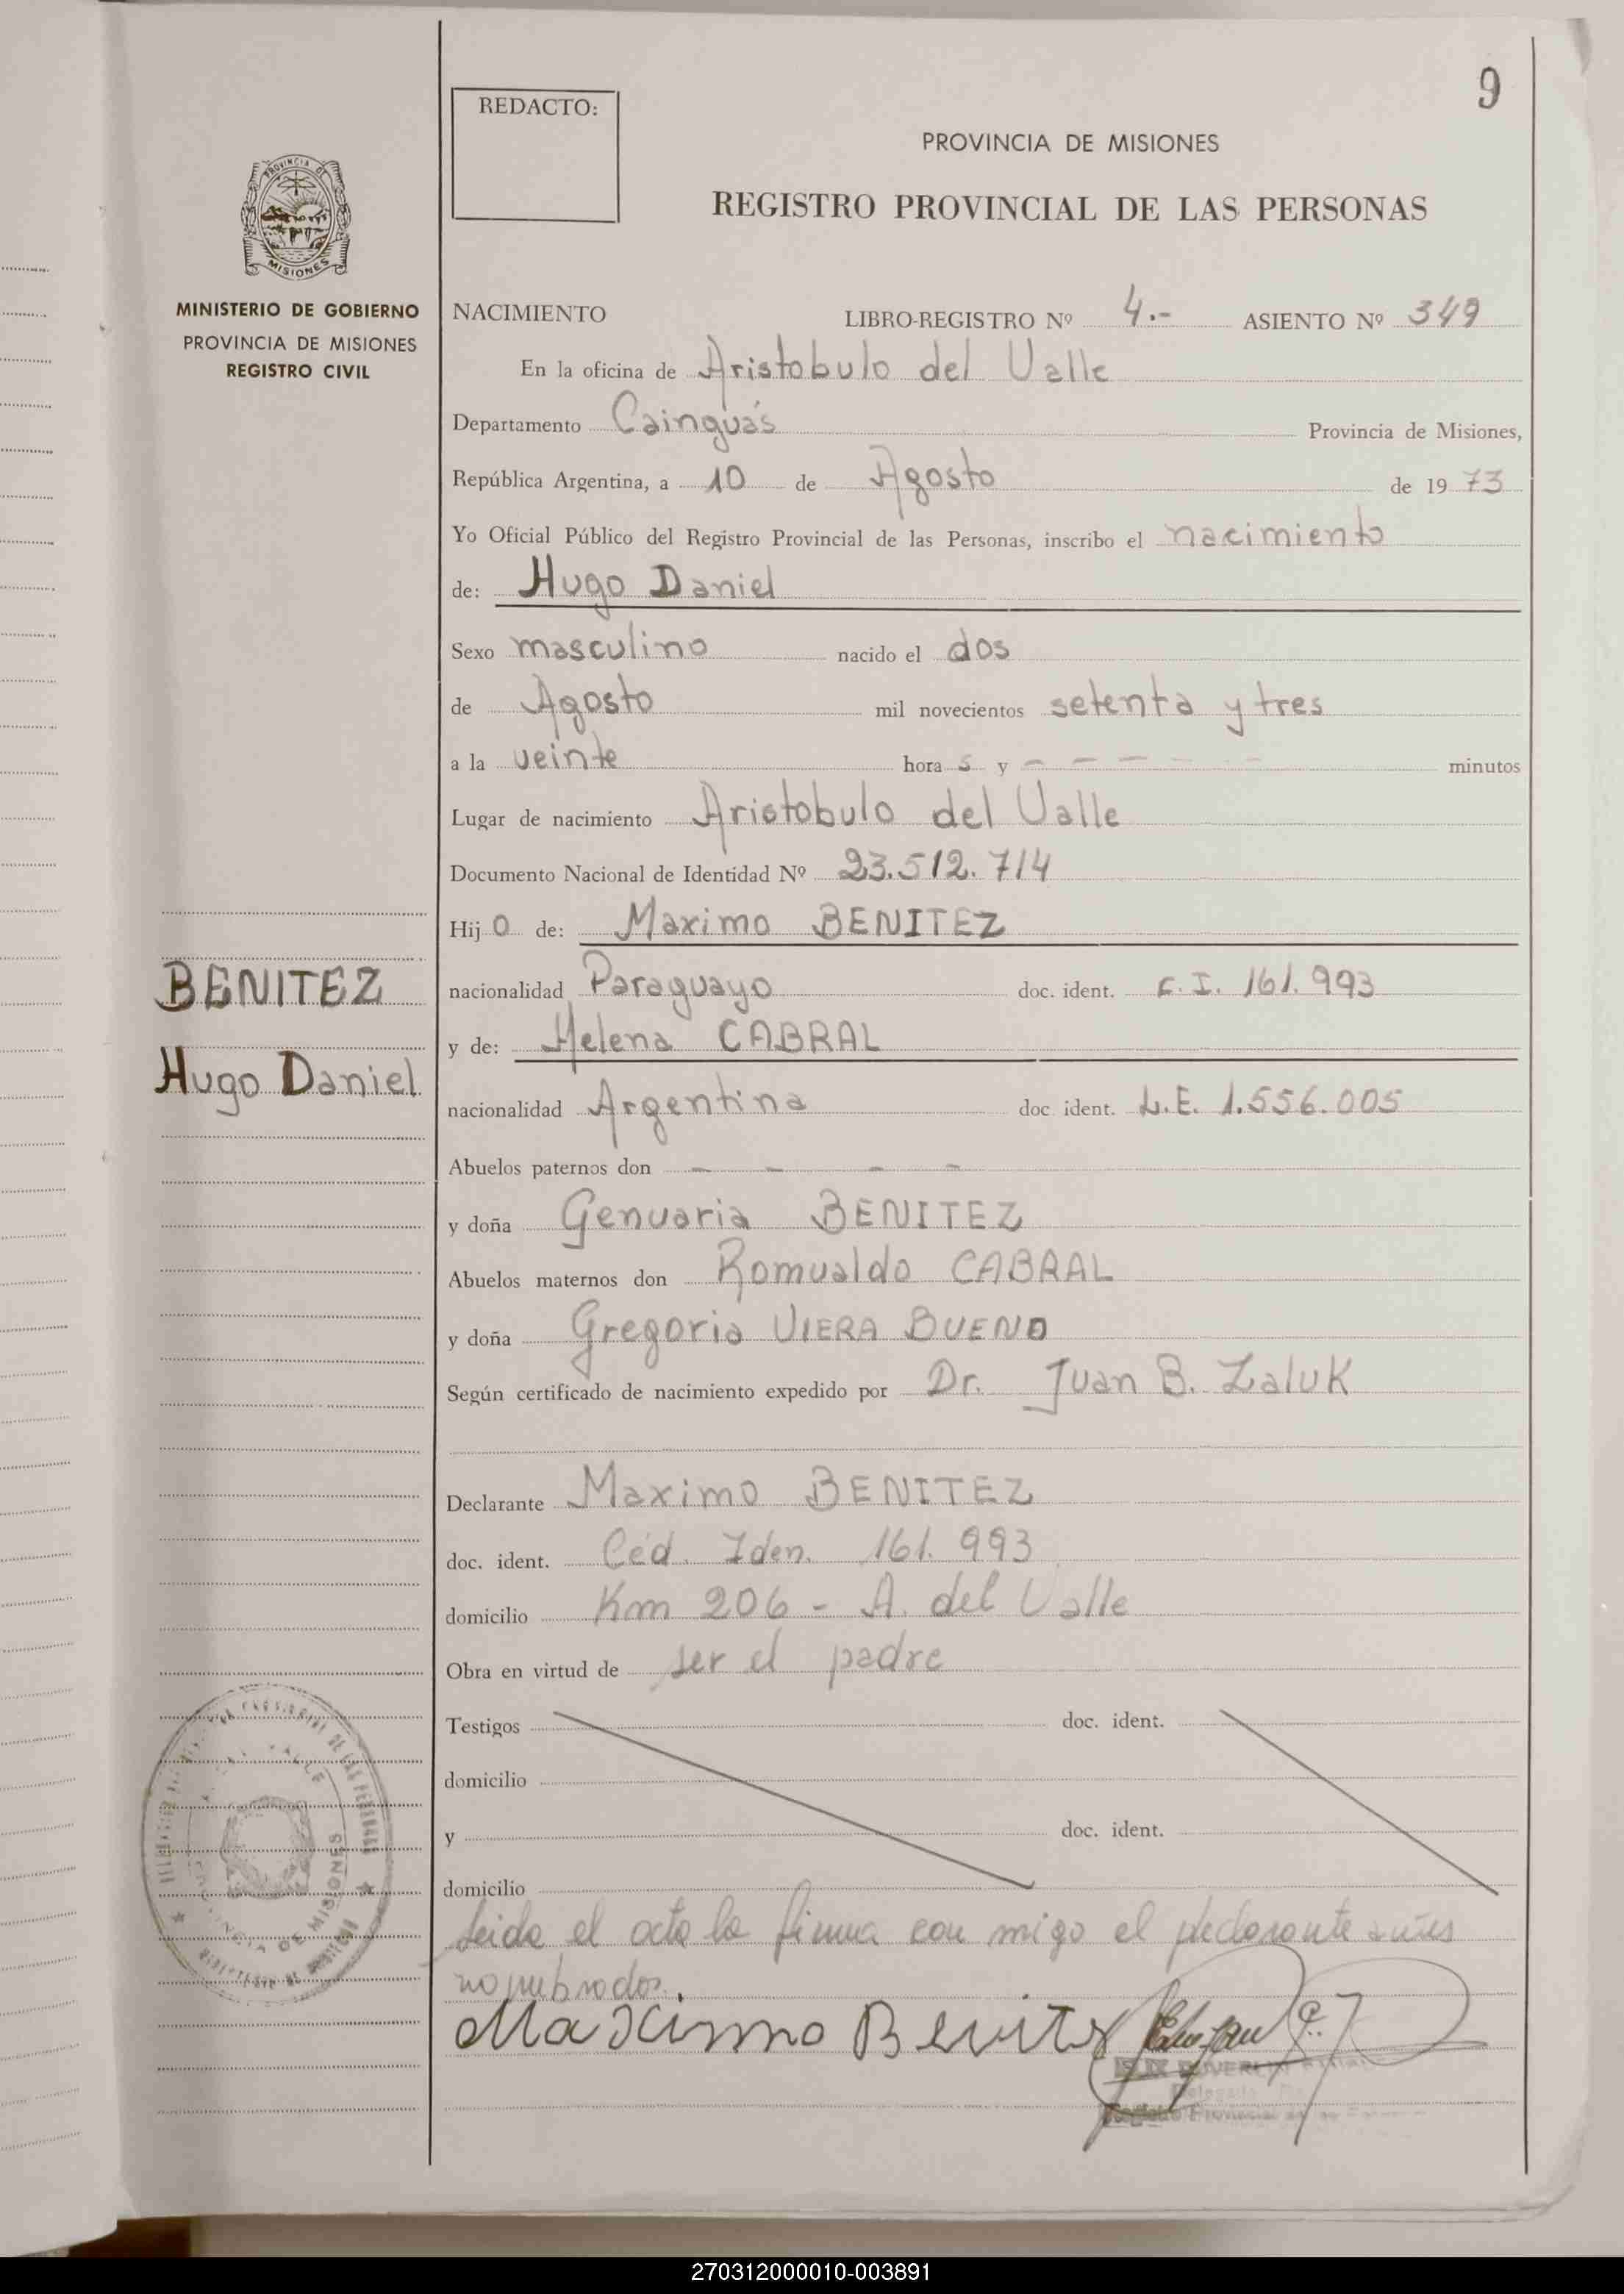 9
REDACTO:
PROVINCIA DE MISIONES
REGISTRO PROVINCIAL DE LAS PERSONAS
PROVINCIA DE
MISIONES
MINISTERIO DE GOBIERNO
PROVINCIA DE MISIONES
REGISTRO CIVIL
NACIMIENTO LIBRO-REGISTRO Nº 4.- ASIENTO Nº 349
En la oficina de Aristobulo del Valle
Departamento Cainguás Provincia de Misiones,
República Argentina, a 10 de Agosto de 1973
Yo Oficial Público del Registro Provincial de las Personas, inscribo el nacimiento
de: Hugo Daniel
Sexo masculino nacido el dos
de Agosto mil novecientos setenta y tres
a la veinte hora s y - - - - - minutos
Lugar de nacimiento Aristobulo del Valle
Documento Nacional de Identidad Nº 23.512.714
Hijo de: Maximo BENITEZ
BENITEZ
nacionalidad Paraguayo doc. ident. C.I. 161.993
y de: Helena CABRAL
Hugo Daniel
nacionalidad Argentina doc. ident. L.E. 1.556.005
Abuelos paternos don - - - -
y doña Genuaria BENITEZ
Abuelos maternos don Romualdo CABRAL
y doña Gregoria VIERA BUENO
Según certificado de nacimiento expedido por Dr. Juan B. Zaluk
Declarante Maximo BENITEZ
doc. ident. Céd. Iden. 161.993
domicilio Km 206 - A. del Valle
Obra en virtud de ser el padre
Testigos doc. ident.
domicilio
y doc. ident.
domicilio
leida el acta la firma con migo el declarante antes
nombrados.
Maximo Benitez
DE MISIONES
Registro Provincial
270312000010-003891